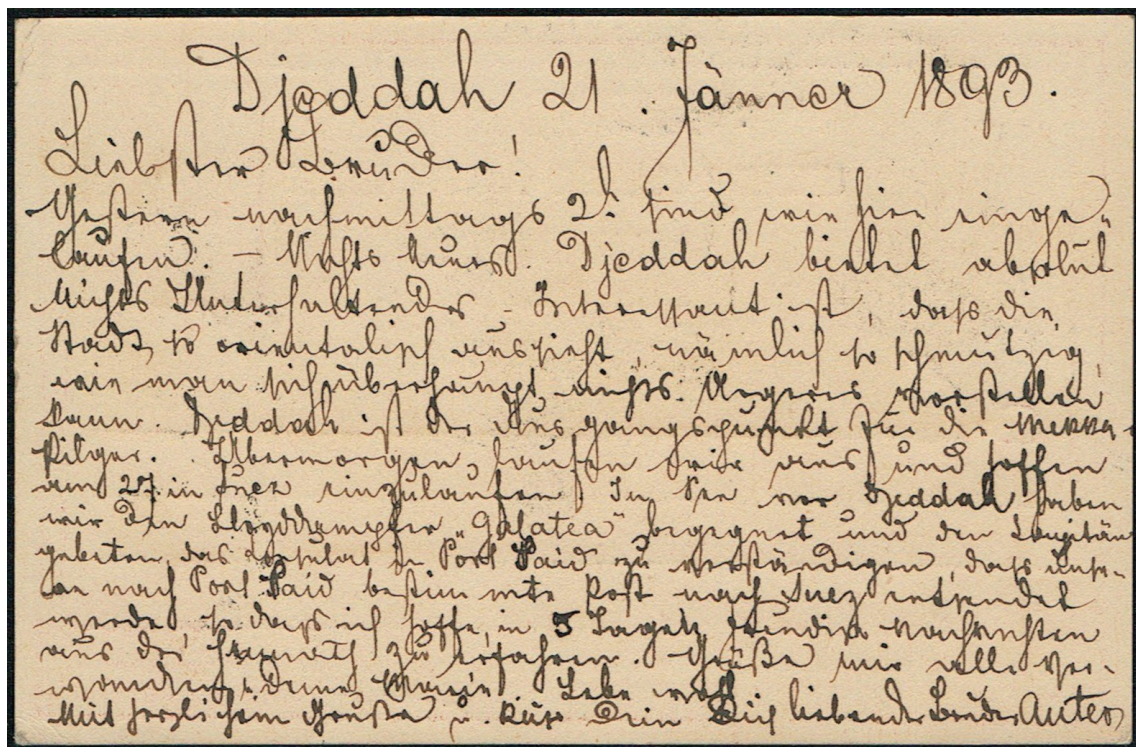 Djeddah 21. Jänner 1893.
Liebster Bruder!
Gestern nachmittags 2h sind wir hier einge-
laufen. – Nichts Neues. Djeddah bietet absolut
Nichts Unterhaltendes – Interessant ist, dass die
Stadt so orientalisch aussieht, nämlich so schmutzig,
wie man sich überhaupt nichts Aergeres vorstellen
kann. Djeddah ist der Ausgangspunkt für die Mekka-
Pilger. Übermorgen laufen wir aus und hoffen
am 27. in Suez einzulaufen. In See vor Djeddah haben
wir den Lloyddampfer „Galatea“ begegnet und den Capitän
gebeten, das Consulat in Port Said zu verständigen, dass unse-
re nach Port Said bestimmte Post nach Suez entsendet
werde, so dass ich hoffe, in 5 Tagen Nachrichten
aus der Heimath zu erfahren. Grüße mir alle Ver-
wandten u. Deine Lebe wohl
Mit herzlichem Gruße u. Kuss Dein Dich liebender Bruder Anton